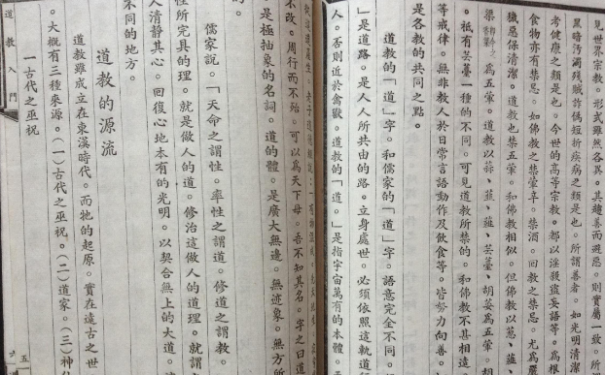 見世界宗教。形式雖然各異。其趨善而避惡。則實屬一致。所
黑暗污濁殘賊詐偽短折疾病之類是也。所謂善者。如光明清潔
考健康之類是也。今世的高等宗教。都以淫殺盜妄語等。爲根
食物亦有禁忌。如佛教之禁葷辛。禁酒。回教之禁忌。尤爲嚴
穢惡保清潔。道教也禁五葷。和佛教相似。但佛教以葱、薤、
爲五葷。道教以韮、薤、蒜、芸薹、胡荽爲五葷。胡
。祇有芸薹一種的不同。可見道教所禁的。和佛教不甚相遠。
等戒律。無非教人於日常言語動作及飲食等。皆努力向善。
是各教的共同之點。
道教的「道」字。和儒家的「道」字。語意完全不同。
」是道路。是人人所共由的路。立身處世。必須依照這軌道
人。否則近於禽獸。道教的「道」。是指宇宙萬有的本體。
不改。周行而不殆。可以爲天下母。吾不知其名。字之曰道
是極抽象的名詞。道的體。是廣大無邊。無迹象。無方所
的。
儒家說。「天命之謂性。率性之謂道。修道之謂教。
性所完具的理。就是做人的道。修治這做人的道理。就謂
人清靜其心。回復心地本有的光明。以契合無上的大道。
不同的地方。
道教的源流
道教雖成立在東漢時代。而牠的起原。實在遠古之世
。大概有三種來源。(一)古代之巫祝。(二)道家。(三)神仙
一 古代之巫祝
道教入門
五